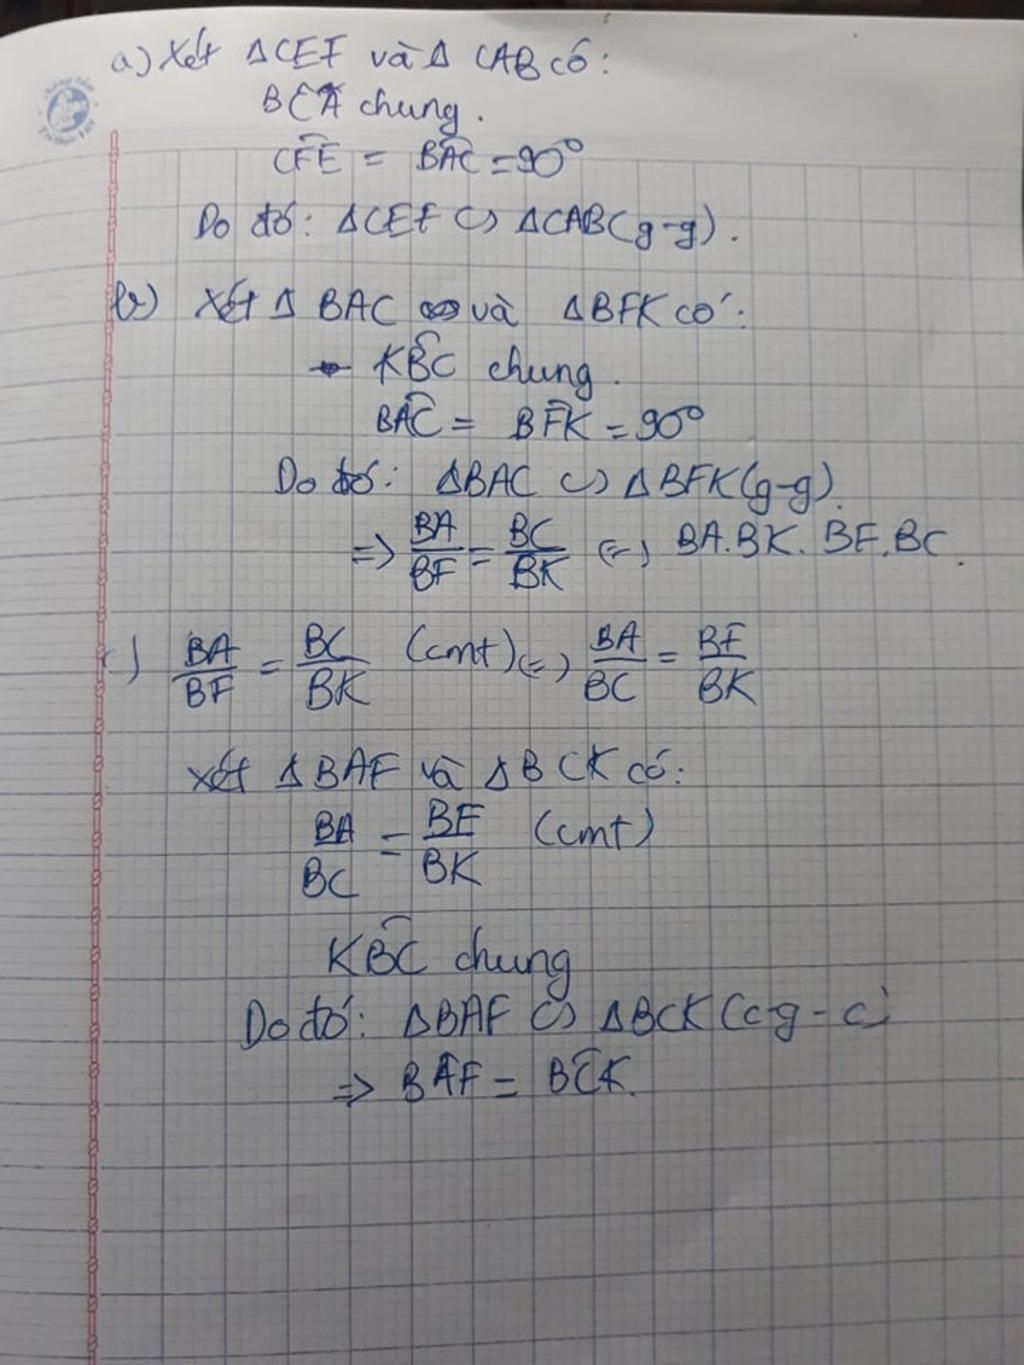 a) Xét ΔCEF và Δ CABcó:
BĈA chung.
CF̂E = BÂC = 90°
Do đó: ΔCEF ∽ ΔCAB(g-g).
b) Xét Δ BAC và ΔBFK có:
KB̂C chung.
BÂC = BF̂K = 90°
Do đó: ΔBAC ∽ ΔBFK(g-g).
=> BA/BF = BC/BK <=> BA.BK. BF.BC.
c) BA/BF = BC/BK (cmt) <=> BA/BC = BF/BK
xét ΔBAF và ΔBCK có:
BA/BC = BF/BK (cmt)
KB̂C chung
Do đó: ΔBAF ∽ ΔBCK (c-g-c)
=> BÂF = BĈK.